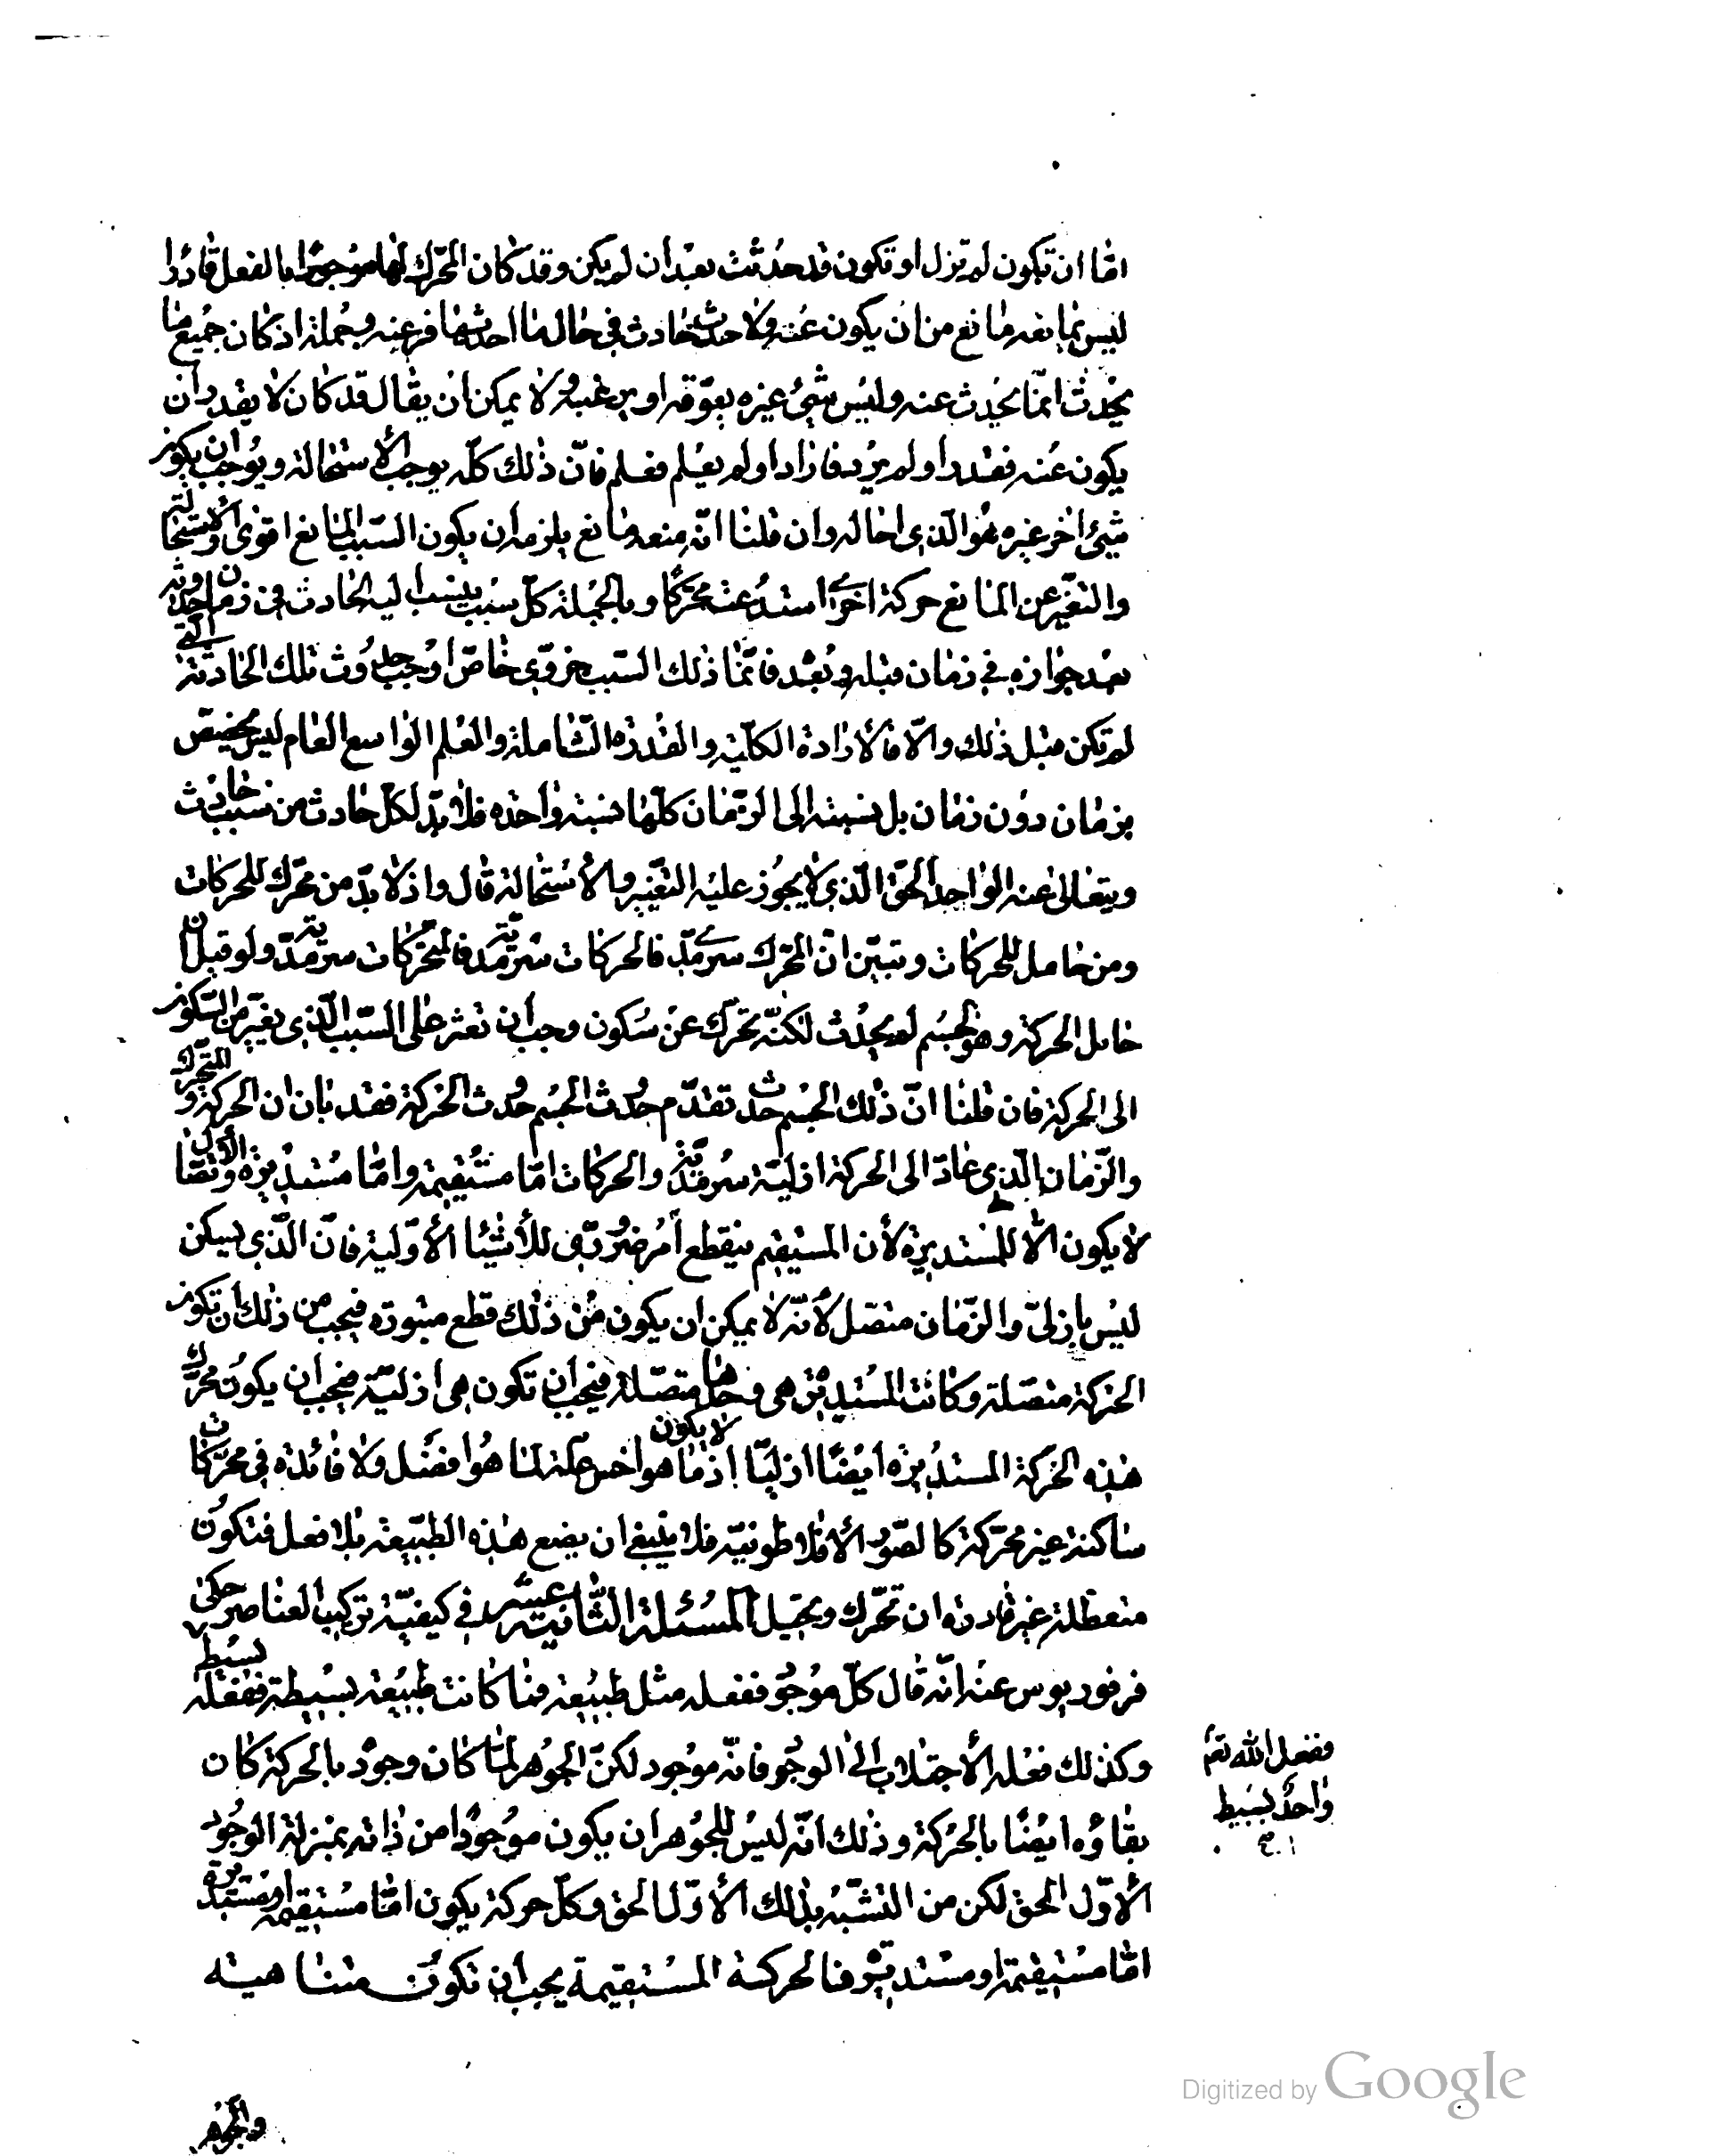 امّا ان تكون لم تزل او تكون قد حدثت بعد ان لم يكن وقد كان المحرّك لها موجودا بالفعل قادرا
ليس يمانعه مانع من ان يكون عنه ولا حدث حادث في حال ما احدثها فرغبه وجملة اذ كان جميع ما
يحدث انّما يحدث عنه وليس شئ غيره يعوّقه او يرغبه ولا يمكن ان يقال قد كان لا يقدر ان
يكون عنه فقدر او لم يرد فاراد او لم يعلم فعلم فانّ ذلك كلّه يوجب الأستحالة ويوجب ان يكون
شئ اخر غيره هو الّذي احاله وان قلنا انّه منعه مانع يلزم ان يكون السّبب المانع اقوى والأستحالة
والتغيّر عن المانع حركة اخرى استدعت محرّكا وبالجملة كلّ سبب ينسب اليه الحادث في زمان حدوثه
بعد جوازه في زمان قبله وبعد فانّما ذلك السّبب جزوي خاصّ اوجب حدوث تلك الحادثة الّتي
لم تكن قبل ذلك والّا فالأرادة الكلّية والقدرة الشّاملة والعلم الواسع العام ليس يخصّص
بزمان دون زمان بل نسبته الى الزّمان كلّها نسبة واحده فلا بدّ لكلّ حادث من سبب حادث
ويتعالى عنه الواحد الحقّ الّذي لا يجوز عليه التغيّر والأستحالة قال واذ لا بدّ من محرّك للحركات
ومن حامل للحركات وتبيّن انّ المحرّك سرمديّ فالحركات سرمديّة فالمتحرّكات سرمديّة ولو قيل انّ
حامل الحركة وهو الجسم لم يحدث لكنّه تحرّك عن سكون وجب ان نعثر على السّبب الّذي يغيّر من السّكون
الى الحركة فان قلنا انّ ذلك الجسم حدث تقدّم حدوث الجسم حدوث الحركة فقد بان ان الحركة والمتحرّك
والزّمان الّذي عادّ الى الحركة ازليّة سرمديّة والحركات امّا مستقيمة وامّا مستديرة والأتّصال
لا يكون الّا للمستديرة لأن المستقيم ينقطع أمر ضروريّ للأشيا الأوّلية فانّ الّذي يسكن
ليس بازليّ والزّمان متصل لأنّه لا يمكن ان يكون من ذلك قطع مبتورة فيجب من ذلك ان تكون
الحركة متصلة وكانت المستديرة هي وحدها متصّلة فيجب ان تكون هي ازليّة فيجب ان يكون محرّك
هذه الحركة المستديرة ايضًا ازليّا اذ لا يكون ما هو اخس علّة لما هو افضل ولا فائدة في محرّكات
ساكنة غير محرّكة كالصّور الأفلاطونيّة فلا ينبغي ان يضع هذه الطبيعة بلا فعل فتكون
متعطلة غير قادرة ان تحرّك وتحيل المسئلة الثّانية عشر في كيفيّة تركيب العناصر حكى
فرفوريوس عنه انّه قال كلّ موجود ففعله مثل طبيعة فما كانت طبيعة بسيطة ففعله بسيط
وكذلك فعله الأجتلاب الى الوجود فانّه موجود لكنّ الجوهر لمّا كان وجوده بالحركة كان
بقاؤه ايضًا بالحركة وذلك انّه ليس للجوهر ان يكون موجودًا من ذاته بمنزلة الوجود
الأوّل الحق لكن من التشبّه بذلك الأوّل الحق وكلّ حركة يكون امّا مستقيمة او مستديرة
امّا مستقيمة او مستديرة فالحركة المستقيمة يجب ان تكون متناهية
ففعل الله تعٰ
واحد بسيط
والجوهر
Digitized by Google